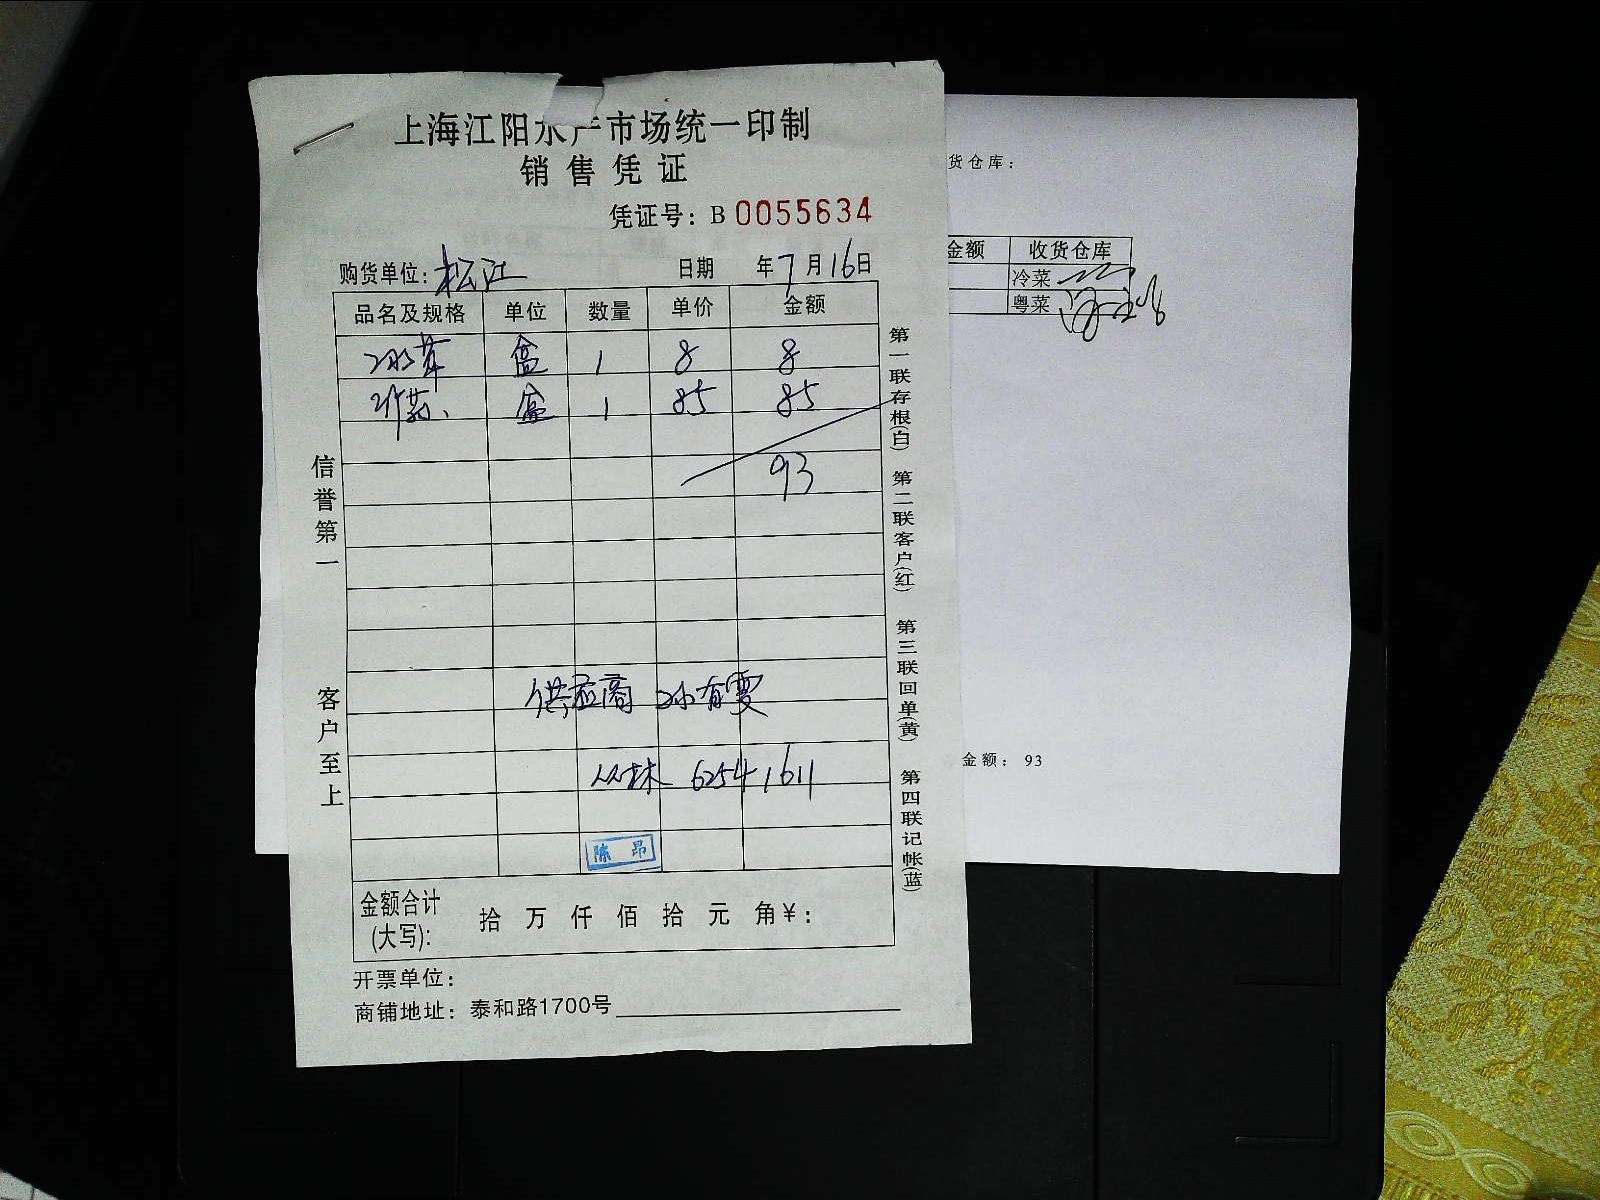 上海江阳水产市场统一印制
销售凭证
凭证号：B 0055634
购货单位：松江 日期 年7月16日
品名及规格 单位 数量 单价 金额
盒 1 8 8
盒 1 85 85
93
供应商 孙有雯
丛林 62541611
陈昂
金额合计(大写)： 拾 万 仟 佰 拾 元 角¥：
开票单位：
商铺地址：泰和路1700号
信誉第一
客户至上
第一联存根(白) 第二联客户(红) 第三联回单(黄) 第四联记帐(蓝)
货仓库：
金额 收货仓库
冷菜
粤菜
金额：93